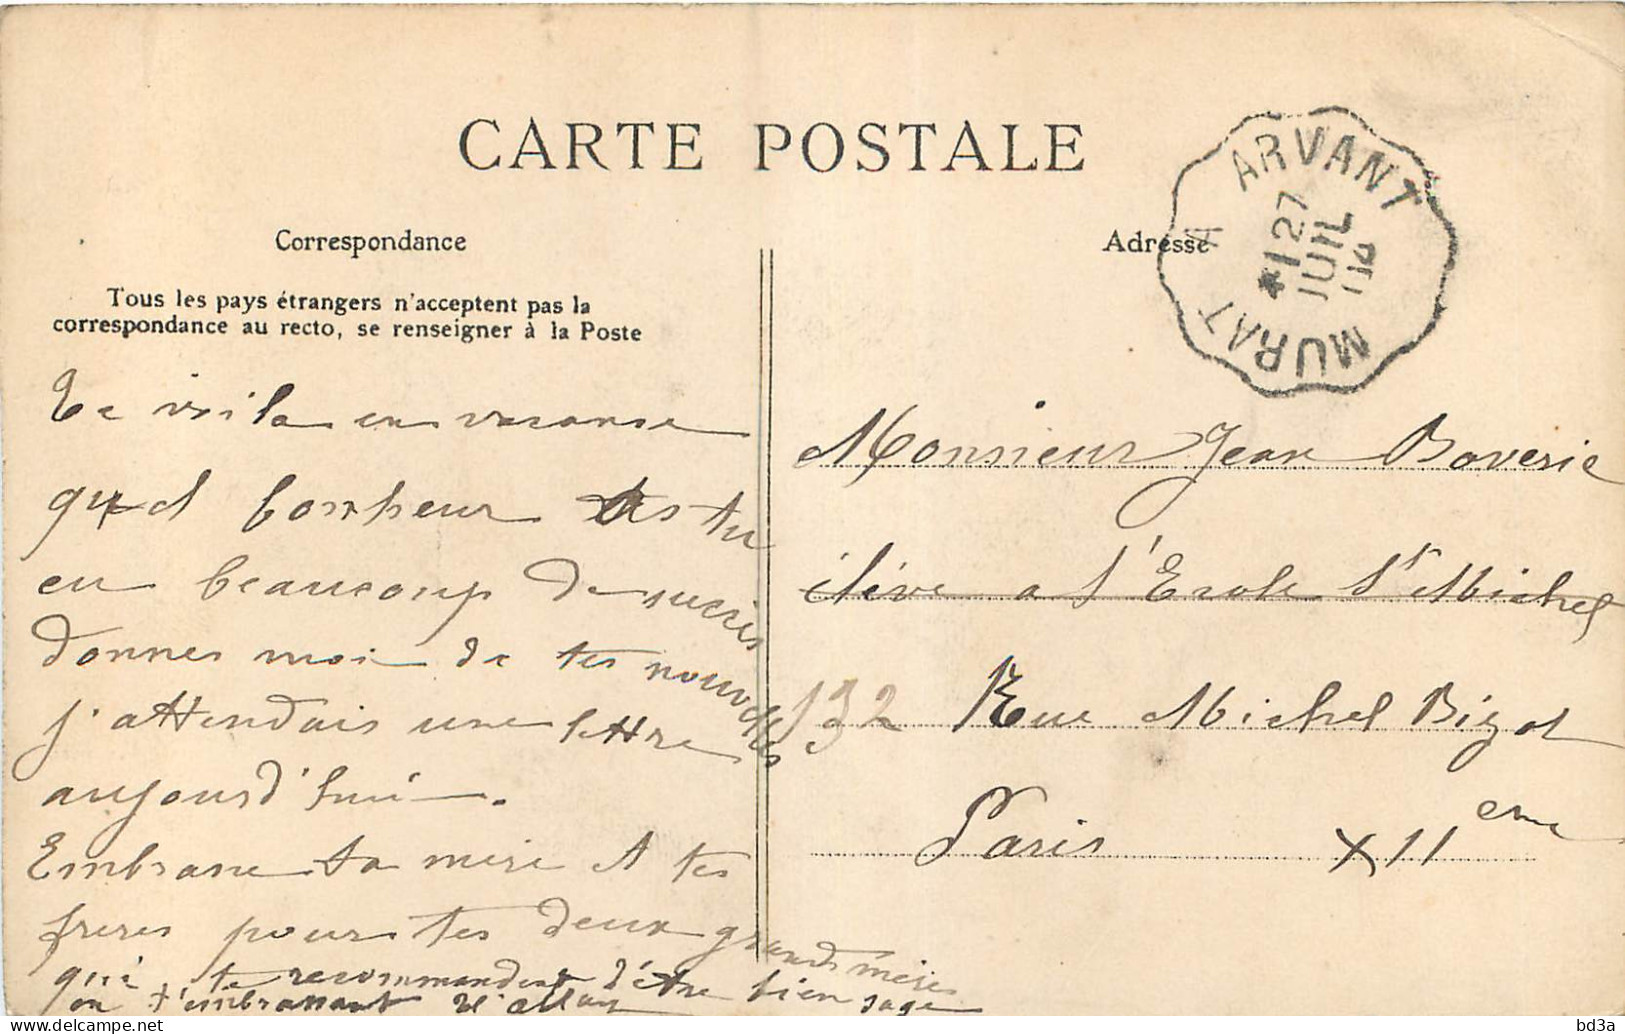 CARTE POSTALE
Correspondance
Tous les pays étrangers n'acceptent pas la
correspondance au recto, se renseigner à la Poste
Te voila en vacanse
quel bonheur As tu
eu beaucoup de succès
donnes moi de tes nouvelles
j'attendais une lettre
aujourd'hui.
Embrasse ta mère et tes
frères pour tes deux grands mères
qui te recommandent d'être bien sage
en t'embrassant
Adresse
ARVANT A MURAT
*1 27
JUIL
14
Monsieur Jean Boverie
élève a l'Ecole St Michel
132 Rue Michel Bizot
Paris XII eme
bd3a